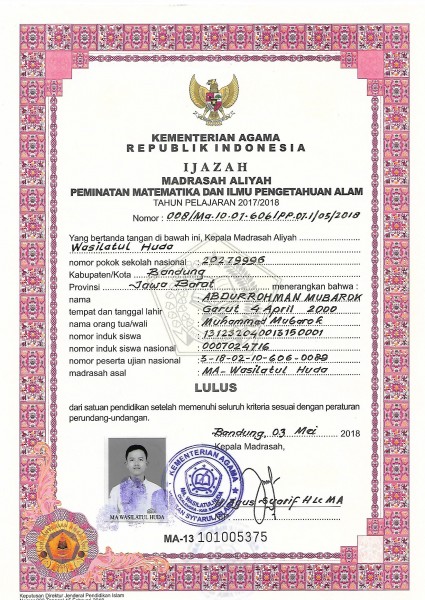 KEMENTERIAN AGAMA
REPUBLIK INDONESIA
IJAZAH
MADRASAH ALIYAH
PEMINATAN MATEMATIKA DAN ILMU PENGETAHUAN ALAM
TAHUN PELAJARAN 2017/2018
Nomor : 008/Ma.10.07.606/PP.01.1/05/2018
Yang bertanda tangan di bawah ini, Kepala Madrasah Aliyah
Wasilatul Huda
nomor pokok sekolah nasional : 20279996
Kabupaten/Kota : Bandung
Provinsi : Jawa Barat menerangkan bahwa :
nama : ABDURROHMAN MUBAROK
tempat dan tanggal lahir : Garut 4 April 2000
nama orang tua/wali : Muhammad Mubarok
nomor induk siswa : 131232040013150001
nomor induk siswa nasional : 0007024716
nomor peserta ujian nasional : 3-18-02-10-606-0089
madrasah asal : MA-Wasilatul Huda
LULUS
dari satuan pendidikan setelah memenuhi seluruh kriteria sesuai dengan peraturan
perundang-undangan.
Bandung, 03 Mei 2018
Kepala Madrasah,
KEMENTERIAN AGAMA
MA WASILATUL HUDA
Syarif H Lc MA
MA-13 101005375
Keputusan Direktur Jenderal Pendidikan Islam